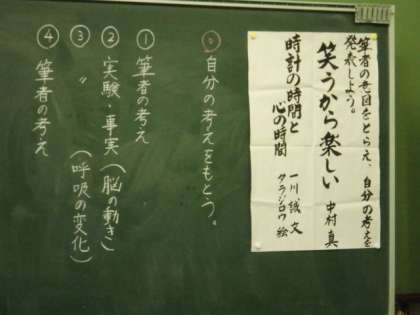 筆者の意図をとらえ、自分の考えを
発表しよう。
笑うから楽しい
中村 真
時計の時間と
心の時間
一川 誠 文
タラジロウ 絵
自分の考えをもとう。
① 筆者の考え
② 実験・事実（脳の動き）
③ 〃 （呼吸の変化）
④ 筆者の考え